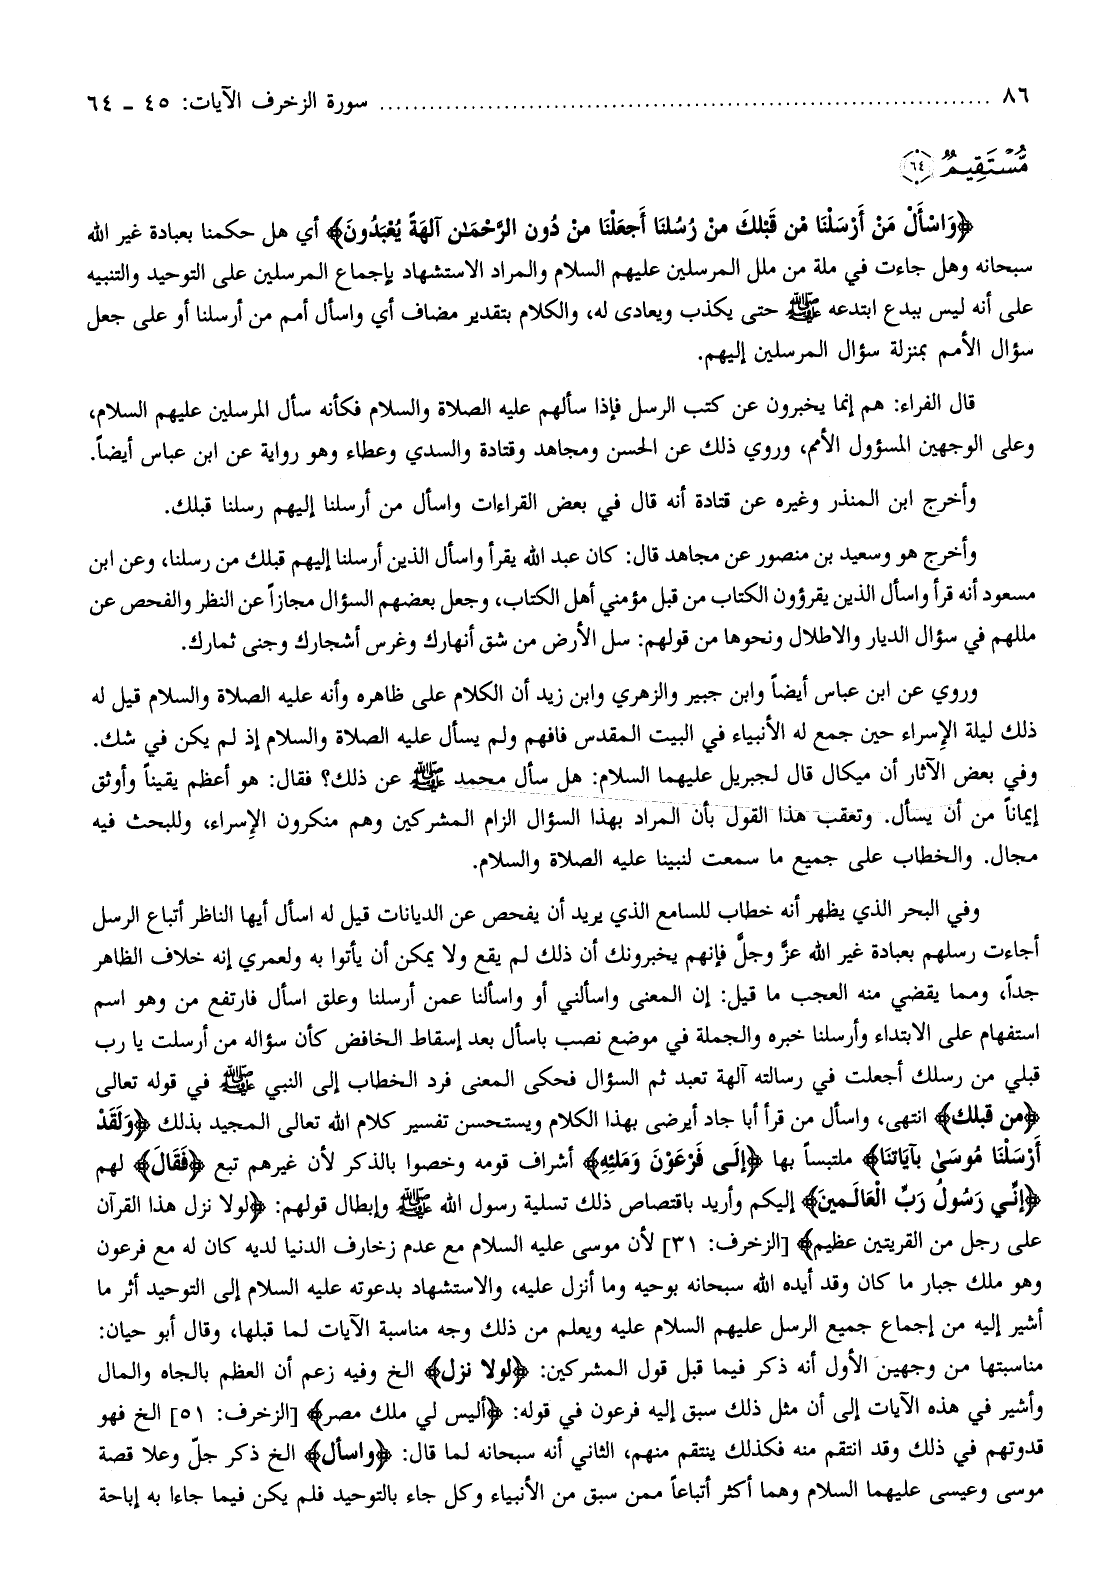 ٨٦ ........................................................................ سورة الزخرف الآيات: ٤٥ ــ ٦٤
مُّسْتَقِيمٌ ﴿٦٤﴾
﴿وَاسْأَلْ مَنْ أَرْسَلْنَا مْن قَبْلكَ منْ رُسُلنَا أَجعَلْنَا منْ دُون الرَّحْمَـٰن آلهَةً يُعْبَدُونَ﴾ أي هل حكمنا بعبادة غير الله
سبحانه وهل جاءت في ملة من ملل المرسلين عليهم السلام والمراد الاستشهاد بإجماع المرسلين على التوحيد والتنبيه
على أنه ليس ببدع ابتدعه ﷺ حتى يكذب ويعادى له، والكلام بتقدير مضاف أي واسأل أمم من أرسلنا أو على جعل
سؤال الأمم بمنزلة سؤال المرسلين إليهم.
قال الفراء: هم إنما يخبرون عن كتب الرسل فإذا سألهم عليه الصلاة والسلام فكأنه سأل المرسلين عليهم السلام،
وعلى الوجهين المسؤول الأمم، وروي ذلك عن الحسن ومجاهد وقتادة والسدي وعطاء وهو رواية عن ابن عباس أيضاً.
وأخرج ابن المنذر وغيره عن قتادة أنه قال في بعض القراءات واسأل من أرسلنا إليهم رسلنا قبلك.
وأخرج هو وسعيد بن منصور عن مجاهد قال: كان عبد الله يقرأ واسأل الذين أرسلنا إليهم قبلك من رسلنا، وعن ابن
مسعود أنه قرأ واسأل الذين يقرؤون الكتاب من قبل مؤمني أهل الكتاب، وجعل بعضهم السؤال مجازاً عن النظر والفحص عن
مللهم في سؤال الديار والاطلال ونحوها من قولهم: سل الأرض من شق أنهارك وغرس أشجارك وجنى ثمارك.
وروي عن ابن عباس أيضاً وابن جبير والزهري وابن زيد أن الكلام على ظاهره وأنه عليه الصلاة والسلام قيل له
ذلك ليلة الإسراء حين جمع له الأنبياء في البيت المقدس فافهم ولم يسأل عليه الصلاة والسلام إذ لم يكن في شك.
وفي بعض الآثار أن ميكال قال لجبريل عليهما السلام: هل سأل محمد ﷺ عن ذلك؟ فقال: هو أعظم يقيناً وأوثق
إيماناً من أن يسأل. وتعقب هذا القول بأن المراد بهذا السؤال الزام المشركين وهم منكرون الإسراء، وللبحث فيه
مجال. والخطاب على جميع ما سمعت لنبينا عليه الصلاة والسلام.
وفي البحر الذي يظهر أنه خطاب للسامع الذي يريد أن يفحص عن الديانات قيل له اسأل أيها الناظر أتباع الرسل
أجاءت رسلهم بعبادة غير الله عزَّ وجلَّ فإنهم يخبرونك أن ذلك لم يقع ولا يمكن أن يأتوا به ولعمري إنه خلاف الظاهر
جداً، ومما يقضي منه العجب ما قيل: إن المعنى واسألني أو واسألنا عمن أرسلنا وعلق اسأل فارتفع من وهو اسم
استفهام على الابتداء وأرسلنا خبره والجملة في موضع نصب باسأل بعد إسقاط الخافض كأن سؤاله من أرسلت يا رب
قبلي من رسلك أجعلت في رسالته آلهة تعبد ثم السؤال فحكى المعنى فرد الخطاب إلى النبي ﷺ في قوله تعالى
﴿من قبلك﴾ انتهى، واسأل من قرأ أبا جاد أيرضى بهذا الكلام ويستحسن تفسير كلام الله تعالى المجيد بذلك ﴿وَلَقَدْ
أَرْسَلْنَا مُوسَىٰ بآيَاتنَا﴾ ملتبساً بها ﴿إلَـى فرْعَوْنَ وَمَلئِهِ﴾ أشراف قومه وخصوا بالذكر لأن غيرهم تبع ﴿فَقَالَ﴾ لهم
﴿إنِّـي رَسُولُ رَبِّ الْعَالَـمينَ﴾ إليكم وأريد باقتصاص ذلك تسلية رسول الله ﷺ وإبطال قولهم: ﴿لولا نزل هذا القرآن
على رجل من القريتين عظيم﴾ [الزخرف: ٣١] لأن موسى عليه السلام مع عدم زخارف الدنيا لديه كان له مع فرعون
وهو ملك جبار ما كان وقد أيده الله سبحانه بوحيه وما أنزل عليه، والاستشهاد بدعوته عليه السلام إلى التوحيد أثر ما
أشير إليه من إجماع جميع الرسل عليهم السلام عليه ويعلم من ذلك وجه مناسبة الآيات لما قبلها، وقال أبو حيان:
مناسبتها من وجهين الأول أنه ذكر فيما قبل قول المشركين: ﴿لولا نزل﴾ الخ وفيه زعم أن العظم بالجاه والمال
وأشير في هذه الآيات إلى أن مثل ذلك سبق إليه فرعون في قوله: ﴿أليس لي ملك مصر﴾ [الزخرف: ٥١] الخ فهو
قدوتهم في ذلك وقد انتقم منه فكذلك ينتقم منهم، الثاني أنه سبحانه لما قال: ﴿واسأل﴾ الخ ذكر جلّ وعلا قصة
موسى وعيسى عليهما السلام وهما أكثر أتباعاً ممن سبق من الأنبياء وكل جاء بالتوحيد فلم يكن فيما جاءا به إباحة